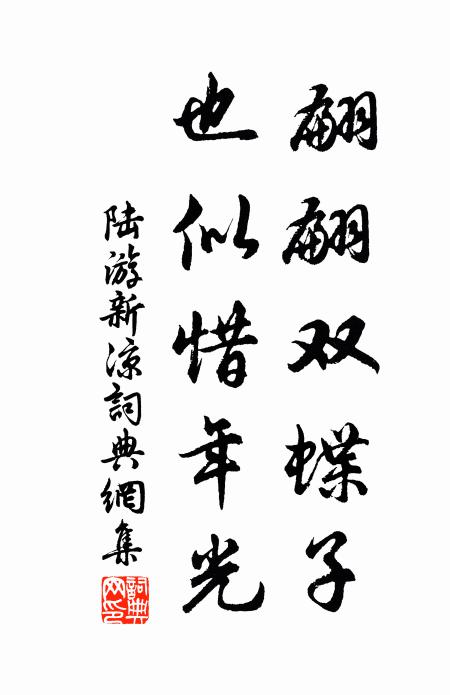 翩翩双蝶子
也似惜年光
陆游新凉詞典網集
詞典
网印